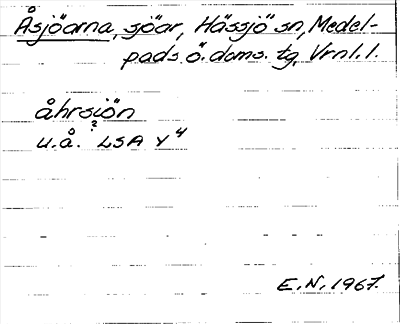 Åsjöarna, sjöar, Hässjö sn, Medel-
pads ö. doms. tg, Vrnl. l.
åhrsiön
u.å.? LSA Y4
E.N. 1967.